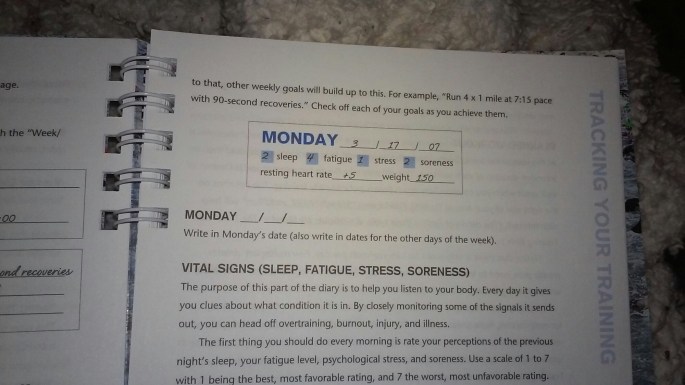 age.
h the "Week/
00
ond recoveries
to that, other weekly goals will build up to this. For example, "Run 4 x 1 mile at 7:15 pace
with 90-second recoveries." Check off each of your goals as you achieve them.
MONDAY 3 / 17 / 07
2 sleep 4 fatigue 1 stress 2 soreness
resting heart rate +5 weight 150
MONDAY __/__/__
Write in Monday's date (also write in dates for the other days of the week).
VITAL SIGNS (SLEEP, FATIGUE, STRESS, SORENESS)
The purpose of this part of the diary is to help you listen to your body. Every day it gives
you clues about what condition it is in. By closely monitoring some of the signals it sends
out, you can head off overtraining, burnout, injury, and illness.
The first thing you should do every morning is rate your perceptions of the previous
night's sleep, your fatigue level, psychological stress, and soreness. Use a scale of 1 to 7
with 1 being the best, most favorable rating, and 7 the worst, most unfavorable rating.
TRACKING YOUR TRAINING